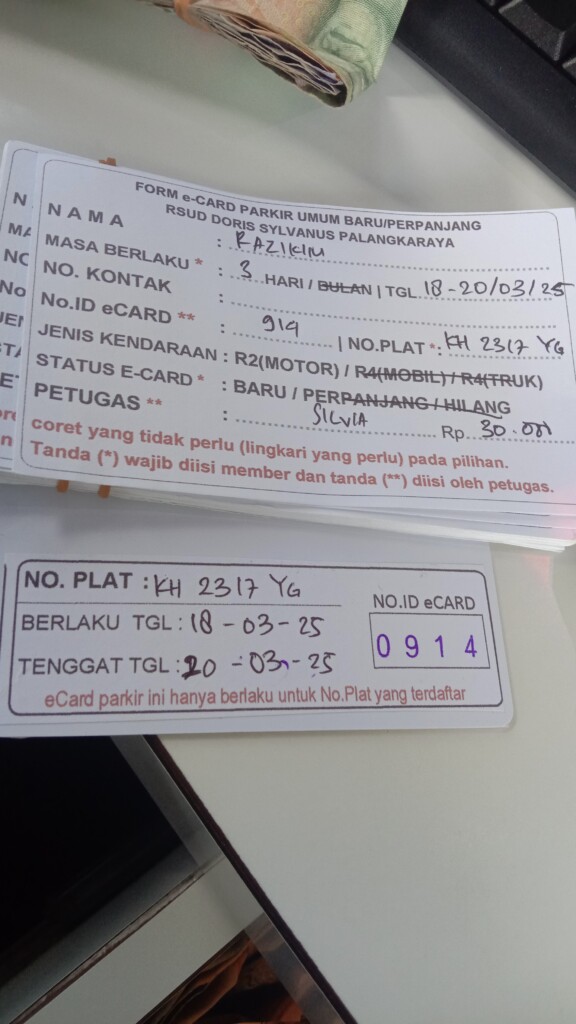 FORM e-CARD PARKIR UMUM BARU/PERPANJANG
RSUD DORIS SYLVANUS PALANGKARAYA
NAMA : RAZIKIM
MASA BERLAKU * : 3 HARI / BULAN | TGL 18-20/03/25
NO. KONTAK :
No.ID eCARD ** : 914 | NO.PLAT *: KH 2317 YG
JENIS KENDARAAN : R2(MOTOR) / R4(MOBIL) / R4(TRUK)
STATUS E-CARD * : BARU / PERPANJANG / HILANG
PETUGAS ** : SILVIA Rp. 30.000
coret yang tidak perlu (lingkari yang perlu) pada pilihan.
Tanda (*) wajib diisi member dan tanda (**) diisi oleh petugas.
NO. PLAT : KH 2317 YG
BERLAKU TGL : 18 - 03 - 25
TENGGAT TGL : 20 - 03 - 25
NO.ID eCARD
0914
eCard parkir ini hanya berlaku untuk No.Plat yang terdaftar